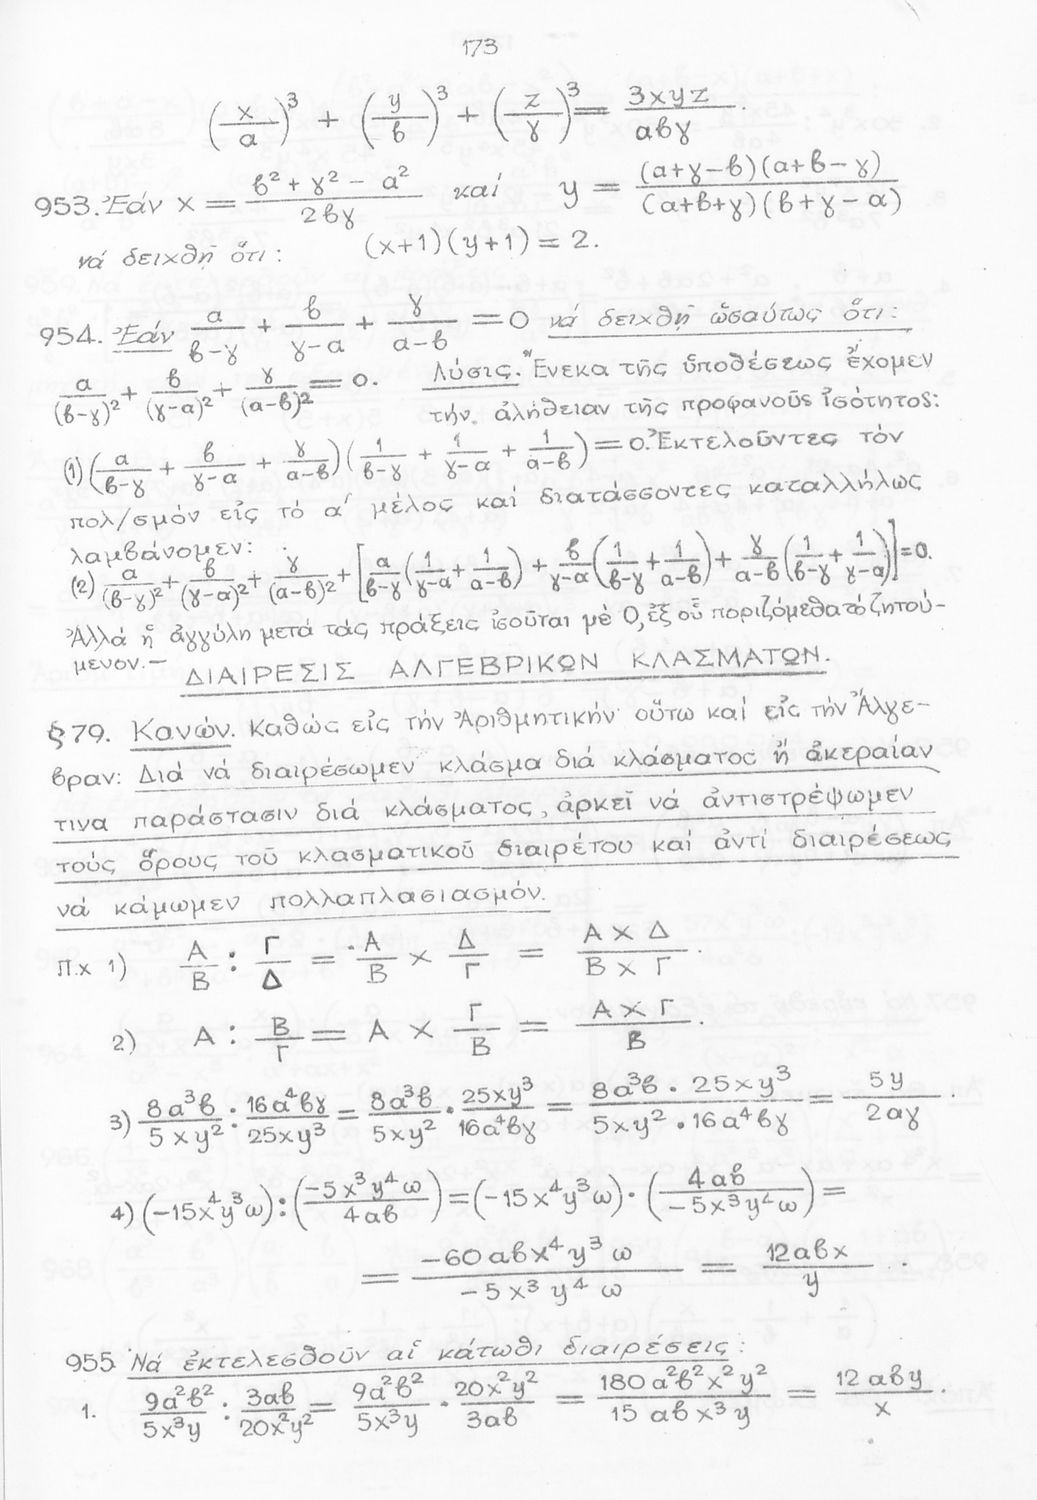 173
(x/α)³ + (y/β)³ + (z/γ)³ = 3xyz/αβγ.
953. Ἐάν x = (β² + γ² - α²)/(2βγ) καί y = (α+γ-β)(α+β-γ)/(α+β+γ)(β+γ-α)
νά δειχθῆ ὅτι: (x+1)(y+1) = 2.
954. Ἐάν α/(β-γ) + β/(γ-α) + γ/(α-β) = 0 νά δειχθῆ ὡσαύτως ὅτι:
α/(β-γ)² + β/(γ-α)² + γ/(α-β)² = 0. Λύσις. Ἕνεκα τῆς ὑποθέσεως ἔχομεν
τήν ἀλήθειαν τῆς προφανοῦς ἰσότητος:
(1) (α/(β-γ) + β/(γ-α) + γ/(α-β)) (1/(β-γ) + 1/(γ-α) + 1/(α-β)) = 0. Ἐκτελοῦντες τόν
πολ/σμόν εἰς τό α΄ μέλος καί διατάσσοντες καταλλήλως
λαμβάνομεν:
(2) α/(β-γ)² + β/(γ-α)² + γ/(α-β)² + [α/(β-γ) (1/(γ-α) + 1/(α-β)) + β/(γ-α) (1/(β-γ) + 1/(α-β)) + γ/(α-β) (1/(β-γ) + 1/(γ-α))] = 0.
Ἀλλά ἡ ἀγγύλη μετά τάς πράξεις ἰσοῦται μέ 0, ἐξ οὗ ποριζόμεθα τό ζητού-
μενον.-
ΔΙΑΙΡΕΣΙΣ ΑΛΓΕΒΡΙΚΩΝ ΚΛΑΣΜΑΤΩΝ.
§ 79. Κανών. Καθώς εἰς τήν Ἀριθμητικήν οὕτω καί εἰς τήν Ἄλγε-
βραν: Διά νά διαιρέσωμεν κλάσμα διά κλάσματος ἤ ἀκεραίαν
τινα παράστασιν διά κλάσματος, ἀρκεῖ νά ἀντιστρέψωμεν
τούς ὅρους τοῦ κλασματικοῦ διαιρέτου καί ἀντί διαιρέσεως
νά κάμωμεν πολλαπλασιασμόν.
Π.χ 1) Α/Β : Γ/Δ = Α/Β × Δ/Γ = (Α × Δ)/(Β × Γ).
2) Α : Β/Γ = Α × Γ/Β = (Α × Γ)/Β.
3) 8α³β/5xy² : 16α⁴βγ/25xy³ = 8α³β/5xy² · 25xy³/16α⁴βγ = (8α³β · 25xy³)/(5xy² · 16α⁴βγ) = 5y/2αγ.
4) (-15x⁴y³ω) : (-5x³y⁴ω/4αβ) = (-15x⁴y³ω) · (4αβ/-5x³y⁴ω) =
= -60αβx⁴y³ω/-5x³y⁴ω = 12αβx/y.
955 Νά ἐκτελεσθοῦν αἱ κάτωθι διαιρέσεις:
1. 9α²β²/5x³y : 3αβ/20x²y² = 9α²β²/5x³y · 20x²y²/3αβ = 180α²β²x²y²/15αβx³y = 12αβy/x.